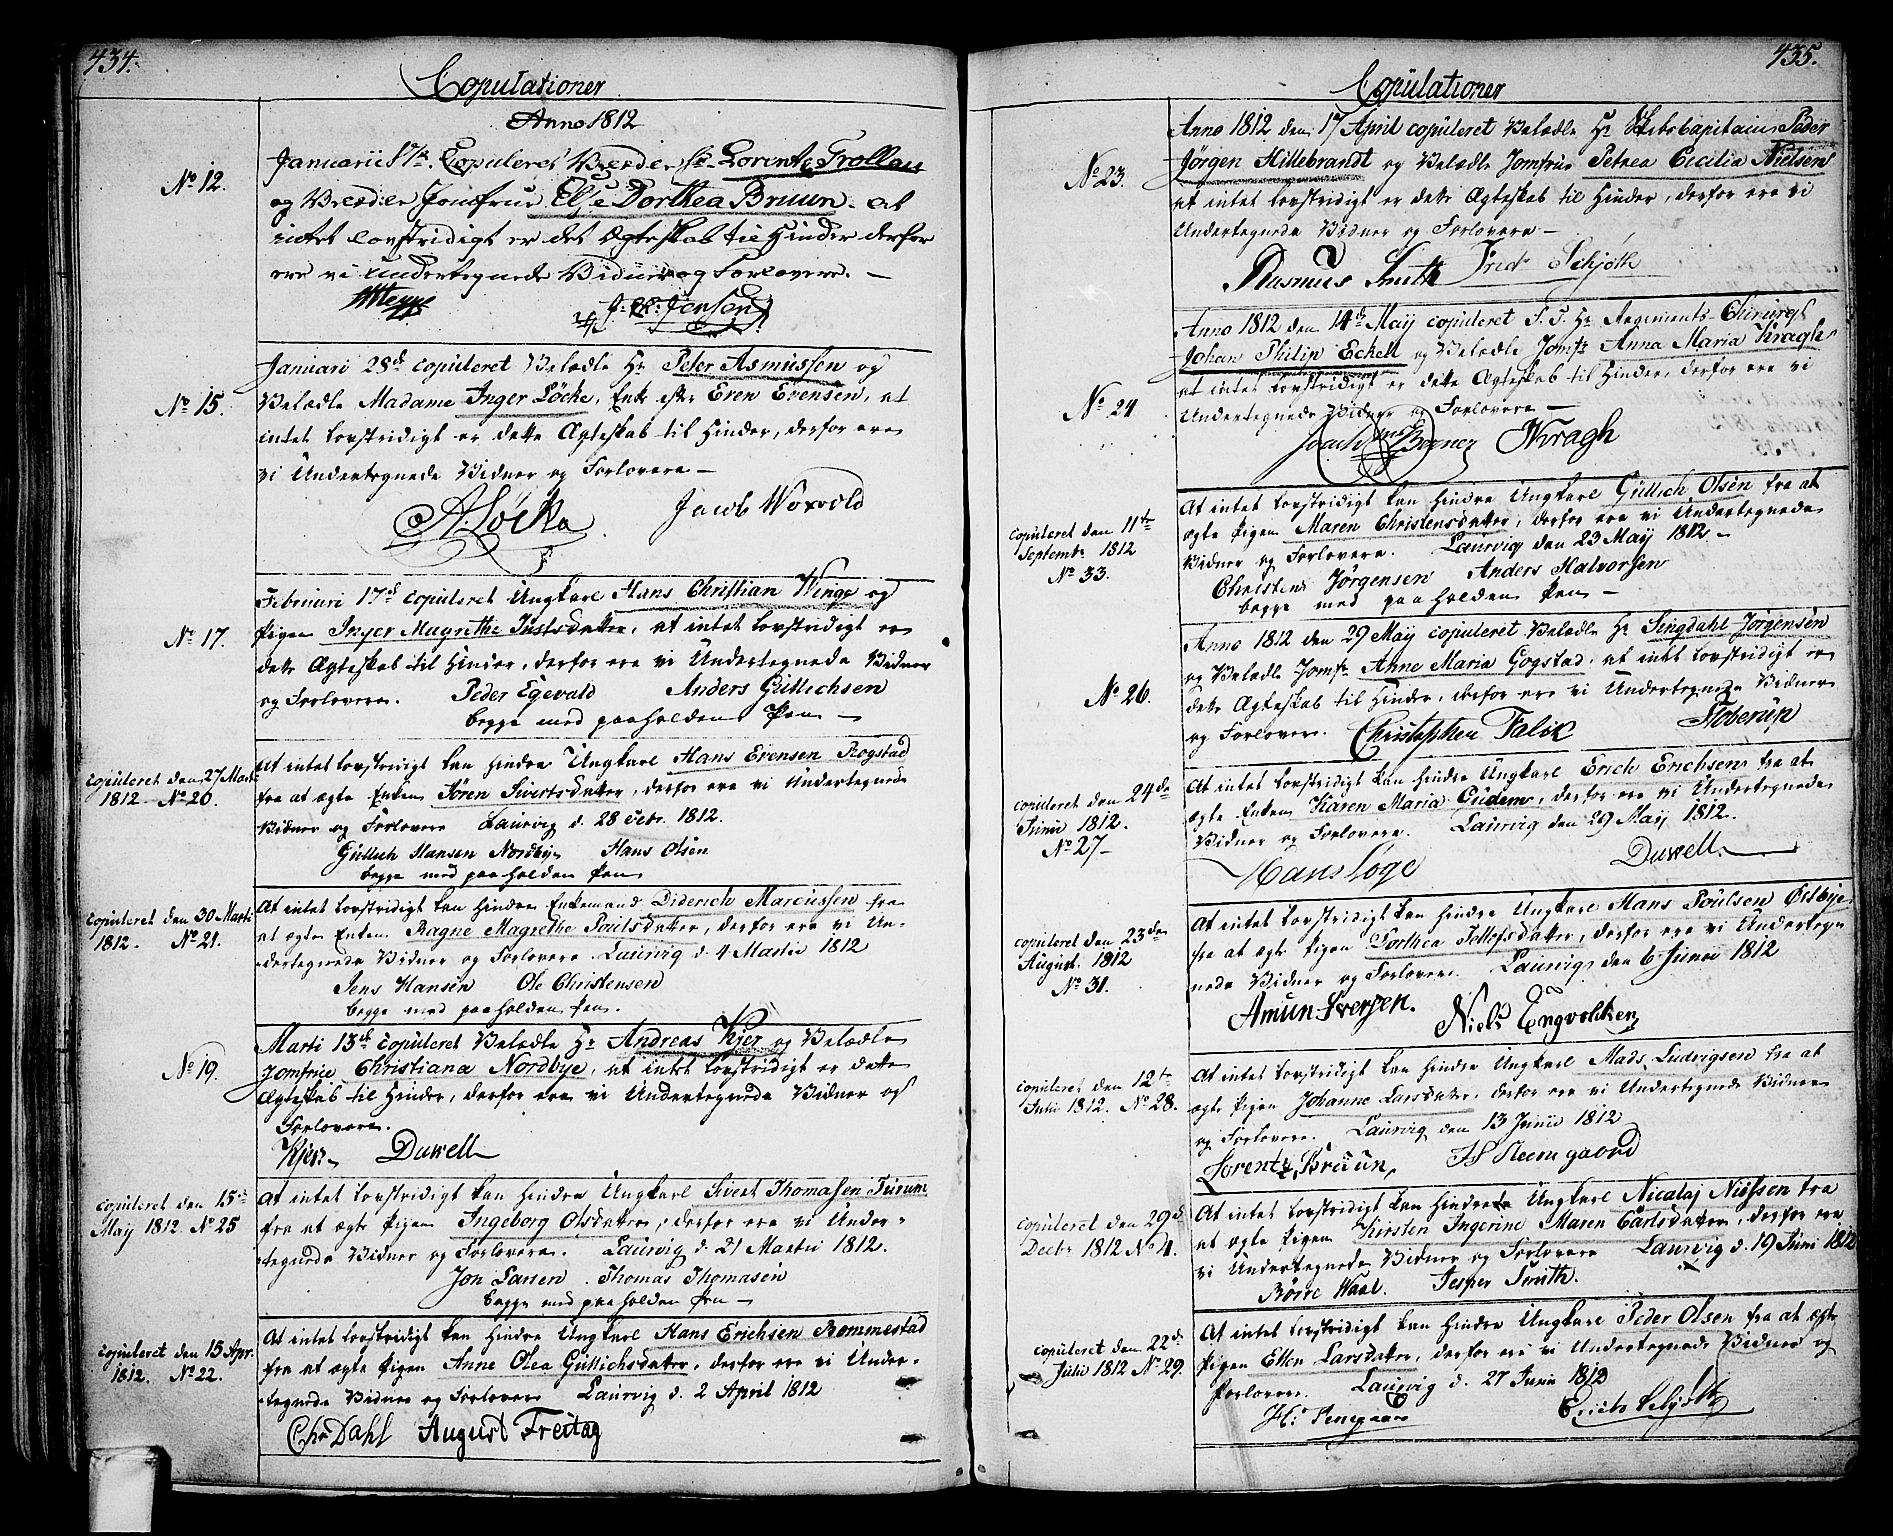 434.
Copulationer
Anno 1812
No 12.
Januarii 17de Copuleret Velædle Hr Lorentz Trollau
og Velædle Jomfrue Else Dorthea Bruun. at
intet lovstridigt er det Ægteskab til Hinder derfor
ere vi Undertegnede Vidner og Forlovere. —
J: N: Jensen
No 15.
Januari 28d copuleret Velædle Hr Peter Asmussen og
Velædle Madame Inger Løcke, Enke efter Even Evensen, at
intet lovstridigt er dette Ægteskab til Hinder, derfor ere
vi Undertegnede Vidner og Forlovere —
A. Løcke Jacob Woxvold
No 17.
Februari 17d copuleret Ungkarl Hans Christian Winge og
Pigen Inger Magrethe Justsdatter, at intet lovstridigt er
dette Ægteskab til Hinder, derfor ere vi Undertegnede Vidner
og Forlovere. Peder Egevald Anders Gullichsen
begge med paaholden Pen —
copuleret den 27 Marti
1812 No 20.
At intet lovstridigt kan hindre Ungkarl Hans Evensen Rogstad
fra at ægte Enken Søren Sivertsdatter, derfor ere vi Undertegnede
Vidner og Forlovere Laurvig d. 28 Febr. 1812.
Gullich Hansen Nordbye Hans Olsen
begge med paaholden Pen
copuleret den 30 Marti
1812. No 21.
At intet lovstridigt kan hindre Enkemand Diderich Marcussen fra
at ægte Enken Ragne Magrethe Poulsdatter, derfor ere vi Un-
dertegnede Vidner og Forlovere Laurvig d 4 Martii 1812
Jens Hansen Ole Christensen
begge med paaholden Pen.
No 19.
Marti 13de copuleret Velædle Hr Andreas Kjer og Velædle
Jomfrue Christiana Nordbye, at intet lovstridigt er dette
Ægteskab til Hinder, derfor ere vi Undertegnede Vidner og
Forlovere.
Kjer Duwell
copuleret den 15de
May 1812 No 25
At intet lovstridigt kan hindre Ungkarl Sivert Thomasen Furum
fra at ægte Pigen Ingeborg Olsdatter, derfor ere vi Under-
tegnede Vidner og Forlovere. Laurvig d. 21 Martii 1812.
Jon Larsen Thomas Thomasen
begge med paaholden Pen —
copuleret den 15 Apr.
1812. No 22.
At intet lovstridigt kan hindre Ungkarl Hans Erichsen Bommestad
fra at ægte Pigen Anne Olea Gullichsdatter, derfor ere vi Under-
tegnede Vidner og Forlovere Laurvig d. 2 April 1812
Chr Dahl August Freitag
435.
Copulationer
No 23.
Anno 1812 den 17 April copuleret Velædle Hr Skibs Capitain Peder
Jørgen Hillebrandt og Velædle Jomfrue Petrea Cecilia Nielsen
at intet lovstridigt er dette Ægteskab til Hinder, derfor ere vi
Undertegnede Vidner og Forlovere —
Rasmus Smith Fred Schjøth
No 24
Anno 1812 den 14de May copuleret S. T. Hr Regiments-Chirurg
Johan Philip Eckell og Velædle Jomfr Anna Maria Kragh
at intet lovstridigt er dette Ægteskab til Hinder, derfor ere vi
Undertegnede Vidner og Forlovere —
Kragh
copuleret den 11te
Septembr 1812
No 33.
At intet lovstridigt kan hindre Ungkarl Gullich Olsen fra at
ægte Pigen Maren Christensdatter, derfor ere vi Undertegnede
Vidner og Forlovere. Laurvig den 23 May 1812 —
Christen Jørgensen Anders Halvorsen
begge med paaholden Pen —
No 26.
Anno 1812 den 29 May copuleret Velædle Hr Singdahl Jørgensen
og Velædle Jomfr Anne Maria Gogstad, at intet lovstridigt er
dette Ægteskab til Hinder, derfor ere vi Undertegnede Vidner
og Forlovere Christopher Falck Stoberup
copuleret den 24de
Junii 1812.
No 27 —
At intet lovstridigt kan hindre Ungkarl Erich Erichsen fra at
ægte Enken Karen Maria Gudem, derfor ere vi Undertegnede
Vidner og Forlovere. Laurvig den 29 May 1812.
Hans Loge Duwell
copuleret den 23de
August. 1812
No 31.
At intet lovstridigt kan hindre Ungkarl Hans Poulsen Østbye
fra at ægte Pigen Dorthea Tellefsdatter, derfor ere vi Underteg-
nede Vidner og Forlovere. Laurvig den 6 Junii 1812
Amun Iversen. Niels Engvoldsen
copuleret den 12te
Julii 1812. No 28.
At intet lovstridigt kan hindre Ungkarl Mads Ludvigsen fra at
ægte Pigen Johanne Larsdatter, derfor ere vi Undertegnede Vidner
og Forlovere. Laurvig den 13 Junii 1812
Lorentz Bruun, H Neemgaard
copuleret den 29d
Decbr 1812 No 4.
At intet lovstridigt kan hindre Ungkarl Nicolaj Nilssen fra
at ægte Pigen Kirsten Ingerine Maren Carlsdatter, derfor ere
vi Undertegnede Vidner og Forlovere Laurvig d. 19 Juni 1812
Børre Waal. Jesper Smith.
copuleret den 22d
Julii 1812 No 29.
At intet lovstridigt kan hindre Ungkarl Peder Olsen fra at ægte
Pigen Ellen Larsdatter, derfor ere vi Undertegnede Vidner og
Forlovere. Laurvig d. 27 Junii 1812